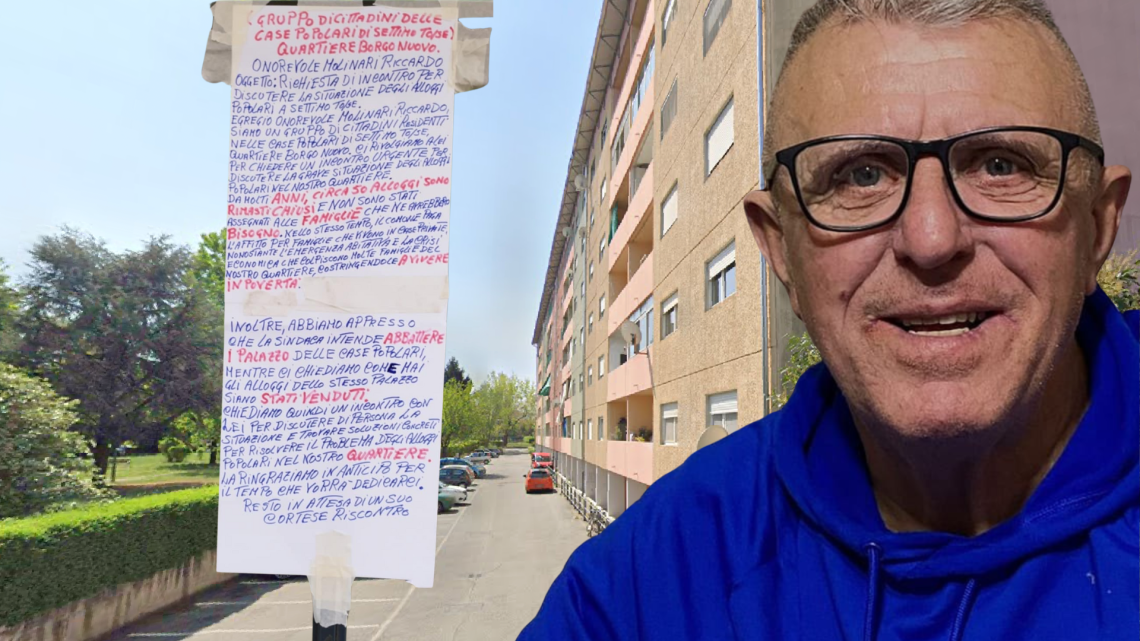 (GRUPPO DI CITTADINI DELLE
CASE POPOLARI DI SETTIMO TO/SE)
QUARTIERE BORGO NUOVO.
ONOREVOLE MOLINARI RICCARDO
OGGETTO: RICHIESTA DI INCONTRO PER
DISCUTERE LA SITUAZIONE DEGLI ALLOGGI
POPOLARI A SETTIMO TO/SE.
EGREGIO ONOREVOLE MOLINARI RICCARDO,
SIAMO UN GRUPPO DI CITTADINI RESIDENTI
NELLE CASE POPOLARI DI SETTIMO TO/SE,
QUARTIERE BORGO NUOVO. CI RIVOLGIAMO A LEI
PER CHIEDERE UN INCONTRO URGENTE PER
DISCUTERE LA GRAVE SITUAZIONE DEGLI ALLOGGI
POPOLARI NEL NOSTRO QUARTIERE.
DA MOLTI ANNI, CIRCA 50 ALLOGGI SONO
RIMASTI CHIUSI E NON SONO STATI
ASSEGNATI ALLE FAMIGLIE CHE NE AVREBBERO
BISOGNO. NELLO STESSO TEMPO, IL COMUNE PAGA
L'AFFITTO PER FAMIGLIE CHE VIVONO IN CASE PRIVATE,
NONOSTANTE L'EMERGENZA ABITATIVA E LA CRISI
ECONOMICA CHE COLPISCONO MOLTE FAMIGLIE DEL
NOSTRO QUARTIERE, COSTRINGENDOLE A VIVERE
IN POVERTÀ.
INOLTRE, ABBIAMO APPRESSO
CHE LA SINDACA INTENDE ABBATTERE
I PALAZZO DELLE CASE POPOLARI,
MENTRE CI CHIEDIAMO COME MAI
GLI ALLOGGI DELLO STESSO PALAZZO
SIANO STATI VENDUTI.
CHIEDIAMO QUINDI UN INCONTRO CON
LEI PER DISCUTERE DI PERSONA LA
SITUAZIONE E TROVARE SOLUZIONI CONCRETI
PER RISOLVERE IL PROBLEMA DEGLI ALLOGGI
POPOLARI NEL NOSTRO QUARTIERE.
LA RINGRAZIAMO IN ANTICIPO PER
IL TEMPO CHE VORRÀ DEDICARCI.
RESTO IN ATTESA DI UN SUO
CORTESE RISCONTRO